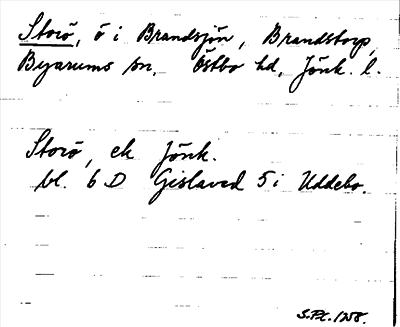 Storö, ö i Brandsjön, Brandstorp,
Byarums sn, Östbo hd, Jönk. l.
Storö, ek Jönk.
bl. 6 D Gislaved 5 i Uddebo.
S.P.C. 1258.